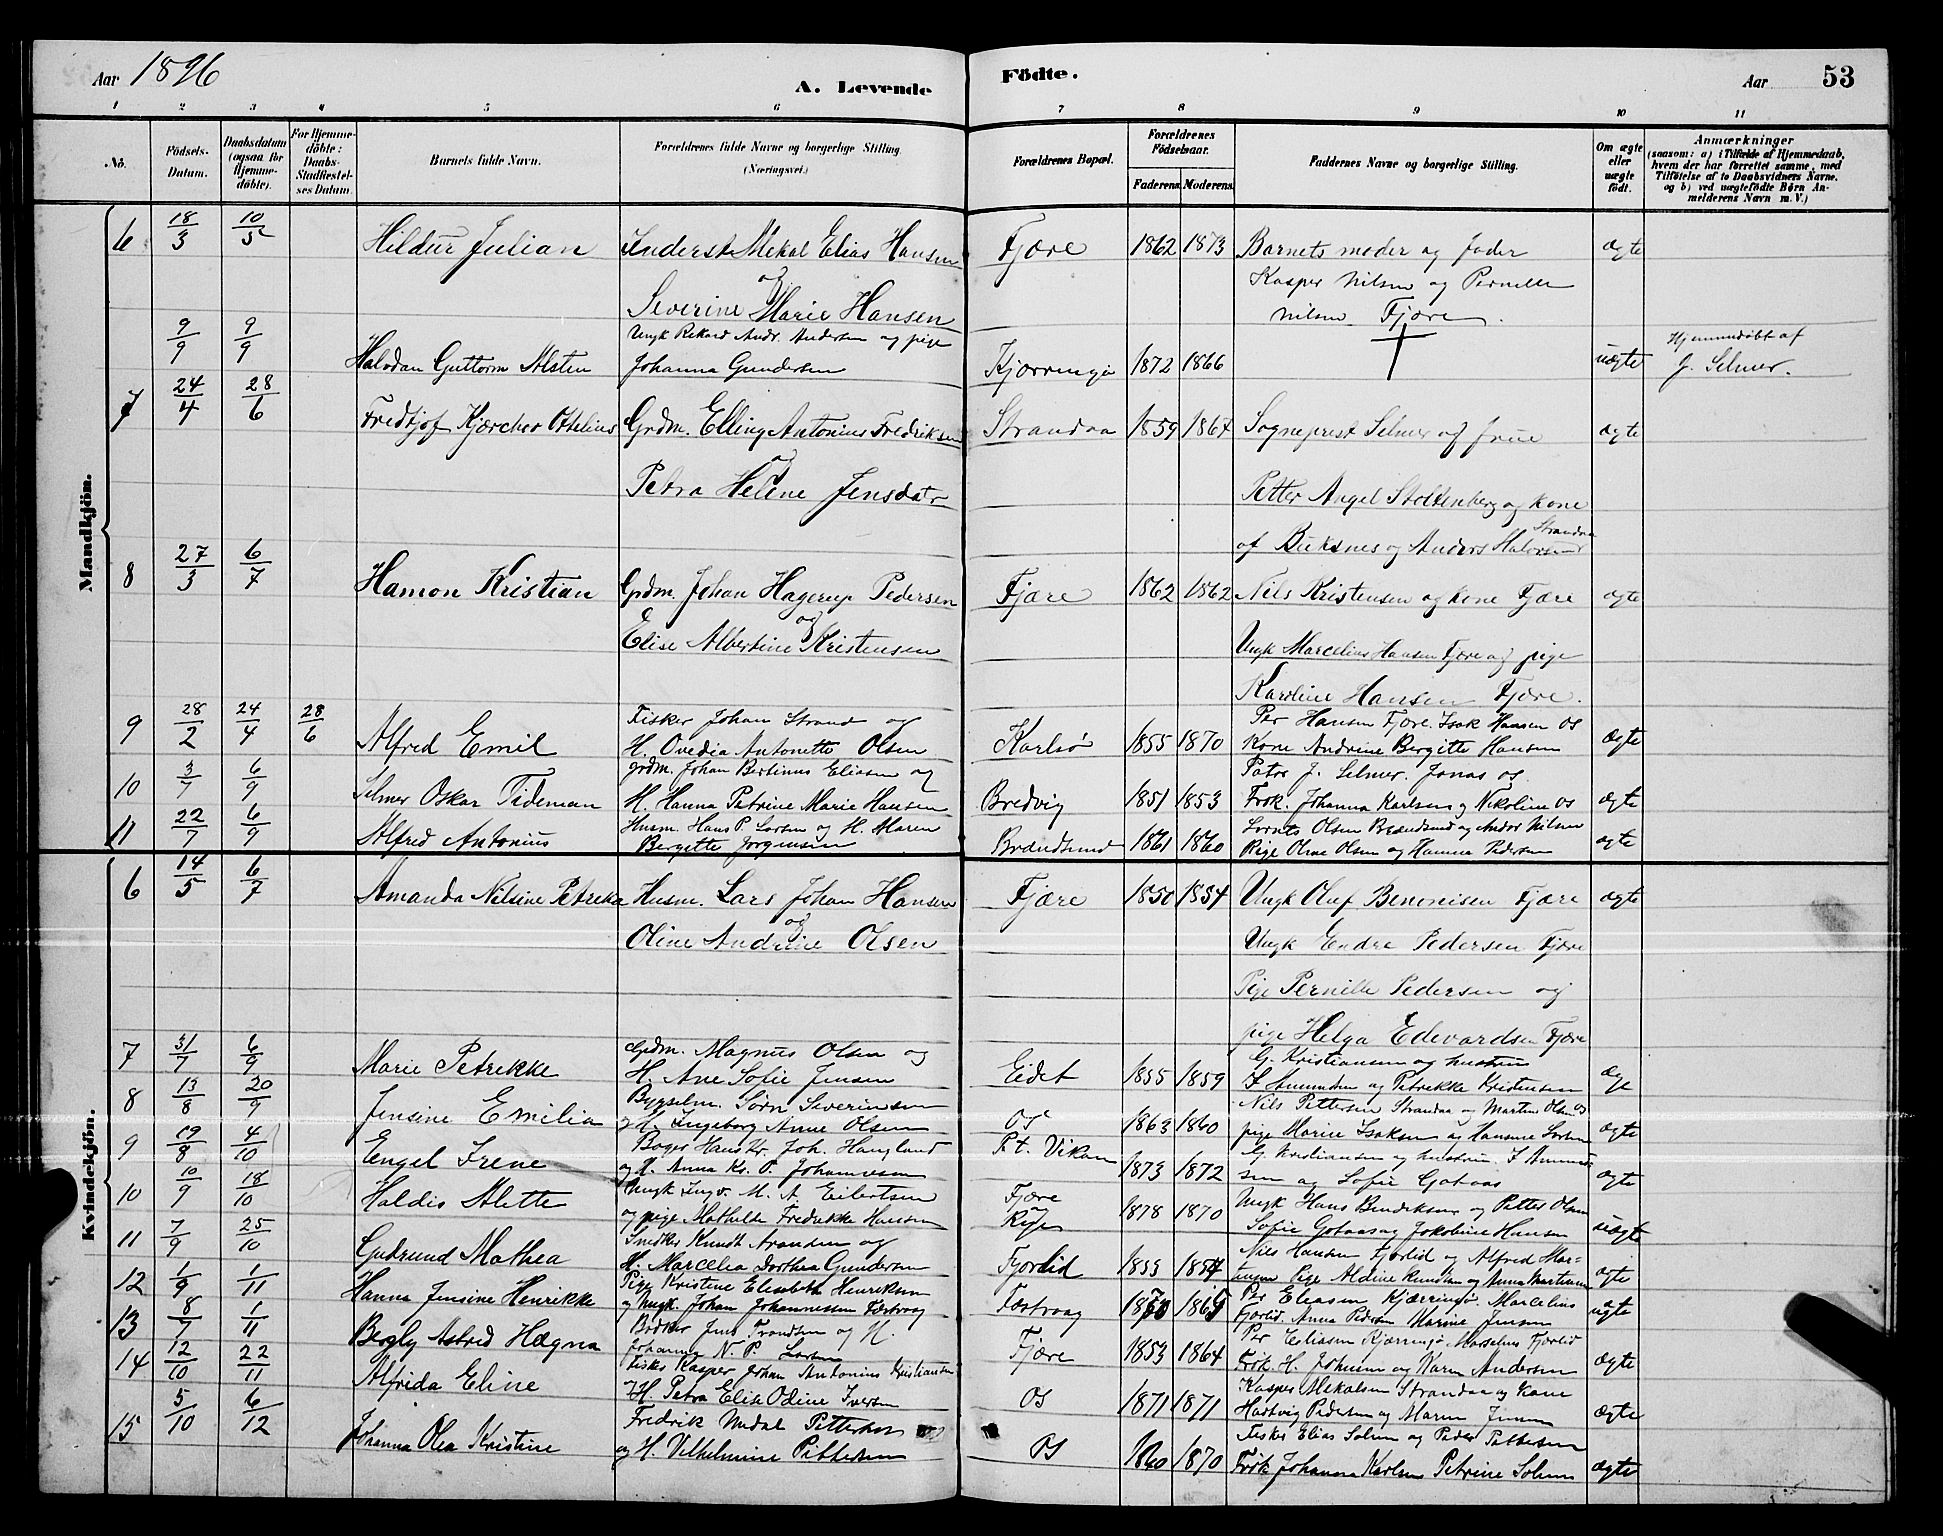 Aar 1896
A. Levende
Födte.
Aar 53
1 2 3 4 5 6 7 8 9 10 11
No.
Födsels-
Datum.
Daabsdatum
(ogsaa for
Hjemme-
döbte).
For Hjemme-
döbte:
Daabs-
Stadfæstel-
ses Datum.
Barnets fulde Navn.
Forældrenes fulde Navne og borgerlige Stilling
(Næringsvei.)
Forældrenes Bopæl.
Forældrenes
Födselsaar.
Faderens. Moderens.
Faddernes Navne og borgerlige Stilling.
Om ægte
eller
uægte
födt.
Anmærkninger
(saasom: a) i Tilfælde af Hjemmedaab,
hvem der har forrettet samme, med
Tilföielse af to Daabsvidners Navne,
og b) ved uægtefödte Börn An-
melderens Navn m. V.)
Mandkjön.
6 18/3 10/5 Hildur Julian Inderst Mekal Elias Hansen Fjære 1862 1873 Barnets moder og fader ægte
og Kasper Nilsen og Pernelle
Severine Marie Hansen Nilsen Fjære.
9/9 9/9 Halvdan Guttorm Alsten Ungk Rikard Andr. Andersen og pige
Johanna Gundersen Kjærringø 1872 1866 † uægte Hjemmedøbt af
J. Selmer.
7 24/4 28/6 Fredtjof Kjærcher Ottelius Grdm. Elling Antonius Fredriksen Strandaa 1859 1867 Sogneprest Selmer og frue ægte
og
Petra Helene Jensdatr Petter Angel Stoltenberg og kone
af Buksnes og Anders Halvorsen Strandaa
8 27/3 6/7 Hamon Kristian Grdm. Johan Hagerup Pedersen Fjære 1862 1862 Nils Kristensen og kone Fjære ægte
og
Elise Albertine Kristensen Ungk Marcelius Hansen Fjære og pige
Karoline Hansen Fjære.
9 28/2 24/4 28/6 Alfred Emil Fisker Johan Strand og
H. Ovedia Antonette Olsen Karlsø 1855 1870 Per Hansen Fjære. Isak Hansen Os
Kone Andrine Bergitte Hansen ægte
10 3/7 6/9 Selmer Oskar Tideman Grdm. Johan Bertinus Eliasen og
H. Hanna Petrine Marie Hansen Bredvig 1851 1853 J. Selmer. Jonas Os.
Frøk. Johanna Karlsen og Nikoline Os ægte
11 22/7 6/9 Alfred Antonius Husm. Hans P. Larsen og H. Maren
Bergitte Jørgensen Brændsund 1861 1860 Olsen Brændsund og Andor Nilsen
Pige Oline Olsen og Hanna Pedersen ægte
Kvindekjön.
6 14/5 6/7 Amanda Nilsine Petreka Husm. Lars Johan Hansen Fjære 1850 1854 Ungk Oluf Benonisen Fjære ægte
og
Oline Andrine Olsen Ungk Endre Pedersen Fjære
Pige Pernille Pedersen og
pige Helga Edevardsen Fjære
7 31/7 6/9 Marie Petrekke Grdm. Magnus Olsen og
H. Ane Sofie Jensen Eidet 1855 1859 G. Kristiansen og hustru
og Petrekke Kristensen
8 13/8 20/9 Jensine Emilia Søren Severinsen
og H. Ingeborg Anne Olsen Os 1863 1860 Nils Pettersen Strandaa og Martin Olsen Os
pige Marie Isaksen og Hansine Larsen ægte
9 19/8 4/10 Engel Irene Bager Hans Kr. Joh. Haugland
og H. Anna Kr. P. Johannesen Pt. Vikan 1873 1872 G. Kristiansen og hustru.
og Sofie Gotaas ægte
10 10/9 18/10 Haldis Alette Ungk Ingv. M. A. Eilertsen
og pige Mathilde Fredrikke Hansen Fjære 1878 1870 Ungk Hans Bendiksen og Petter Olsen
Sofie Gotaas og Jakobine Hansen uægte
11 7/9 25/10 Gudrund Mathea Snedker Knudt Arandsen og
H. Marcelia Dorthea Gundersen Fjærlid 1853 1854 Nils Hansen Fjærlid og Alfred Mar-
tinsen Pige Aldine Knudsen og Anna Martinsen ægte
12 1/9 1/11 Hanna Jensine Henrikke Pige Kristine Elisabeth Henriksen
og Ungk. Johan Johannessen Festvaag Festvaag 1870 1865 Per Eliasen Kjærringø. Marcelius
Fjærlid. Anna Pedersen Marine Jensen uægte
13 8/7 1/11 Bergly Astrid Hægna Bødker Jens Trondsen og H.
Johanna N. P. Larsen Fjære 1853 1864 Per Eliasen Kjærringø. Marselius Fjærlid
Frøk. H. Johnsen og Karen Andersen ægte
14 12/10 22/11 Alfrida Eline Fisker Kasper Johan Antonius Kristiansen
og H. Petra Elise Odine Iversen Os 1871 1871 Kasper Mekalsen Strandaa og kone
Hartvig Pedersen og Maren Jensen ægte
15 5/10 6/12 Johanna Olea Kristine Fredrik Nudal Pettersen
og H. Vilhelmine Pettersen Os 1860 1870 Fisker Elias Solem og Peder Pettersen
Frøk Johanna Karlsen Petrine Solem ægte